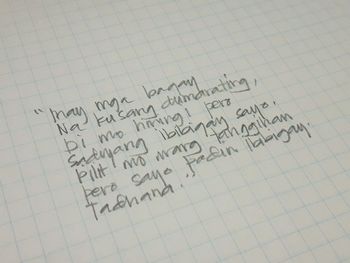 "may mga bagay
Na kusang dumarating,
Di mo hiningi pero
sadyang ibibigay sayo.
Pilit mo mang tanggihan
pero sayo padin ibibigay.
Tadhana.